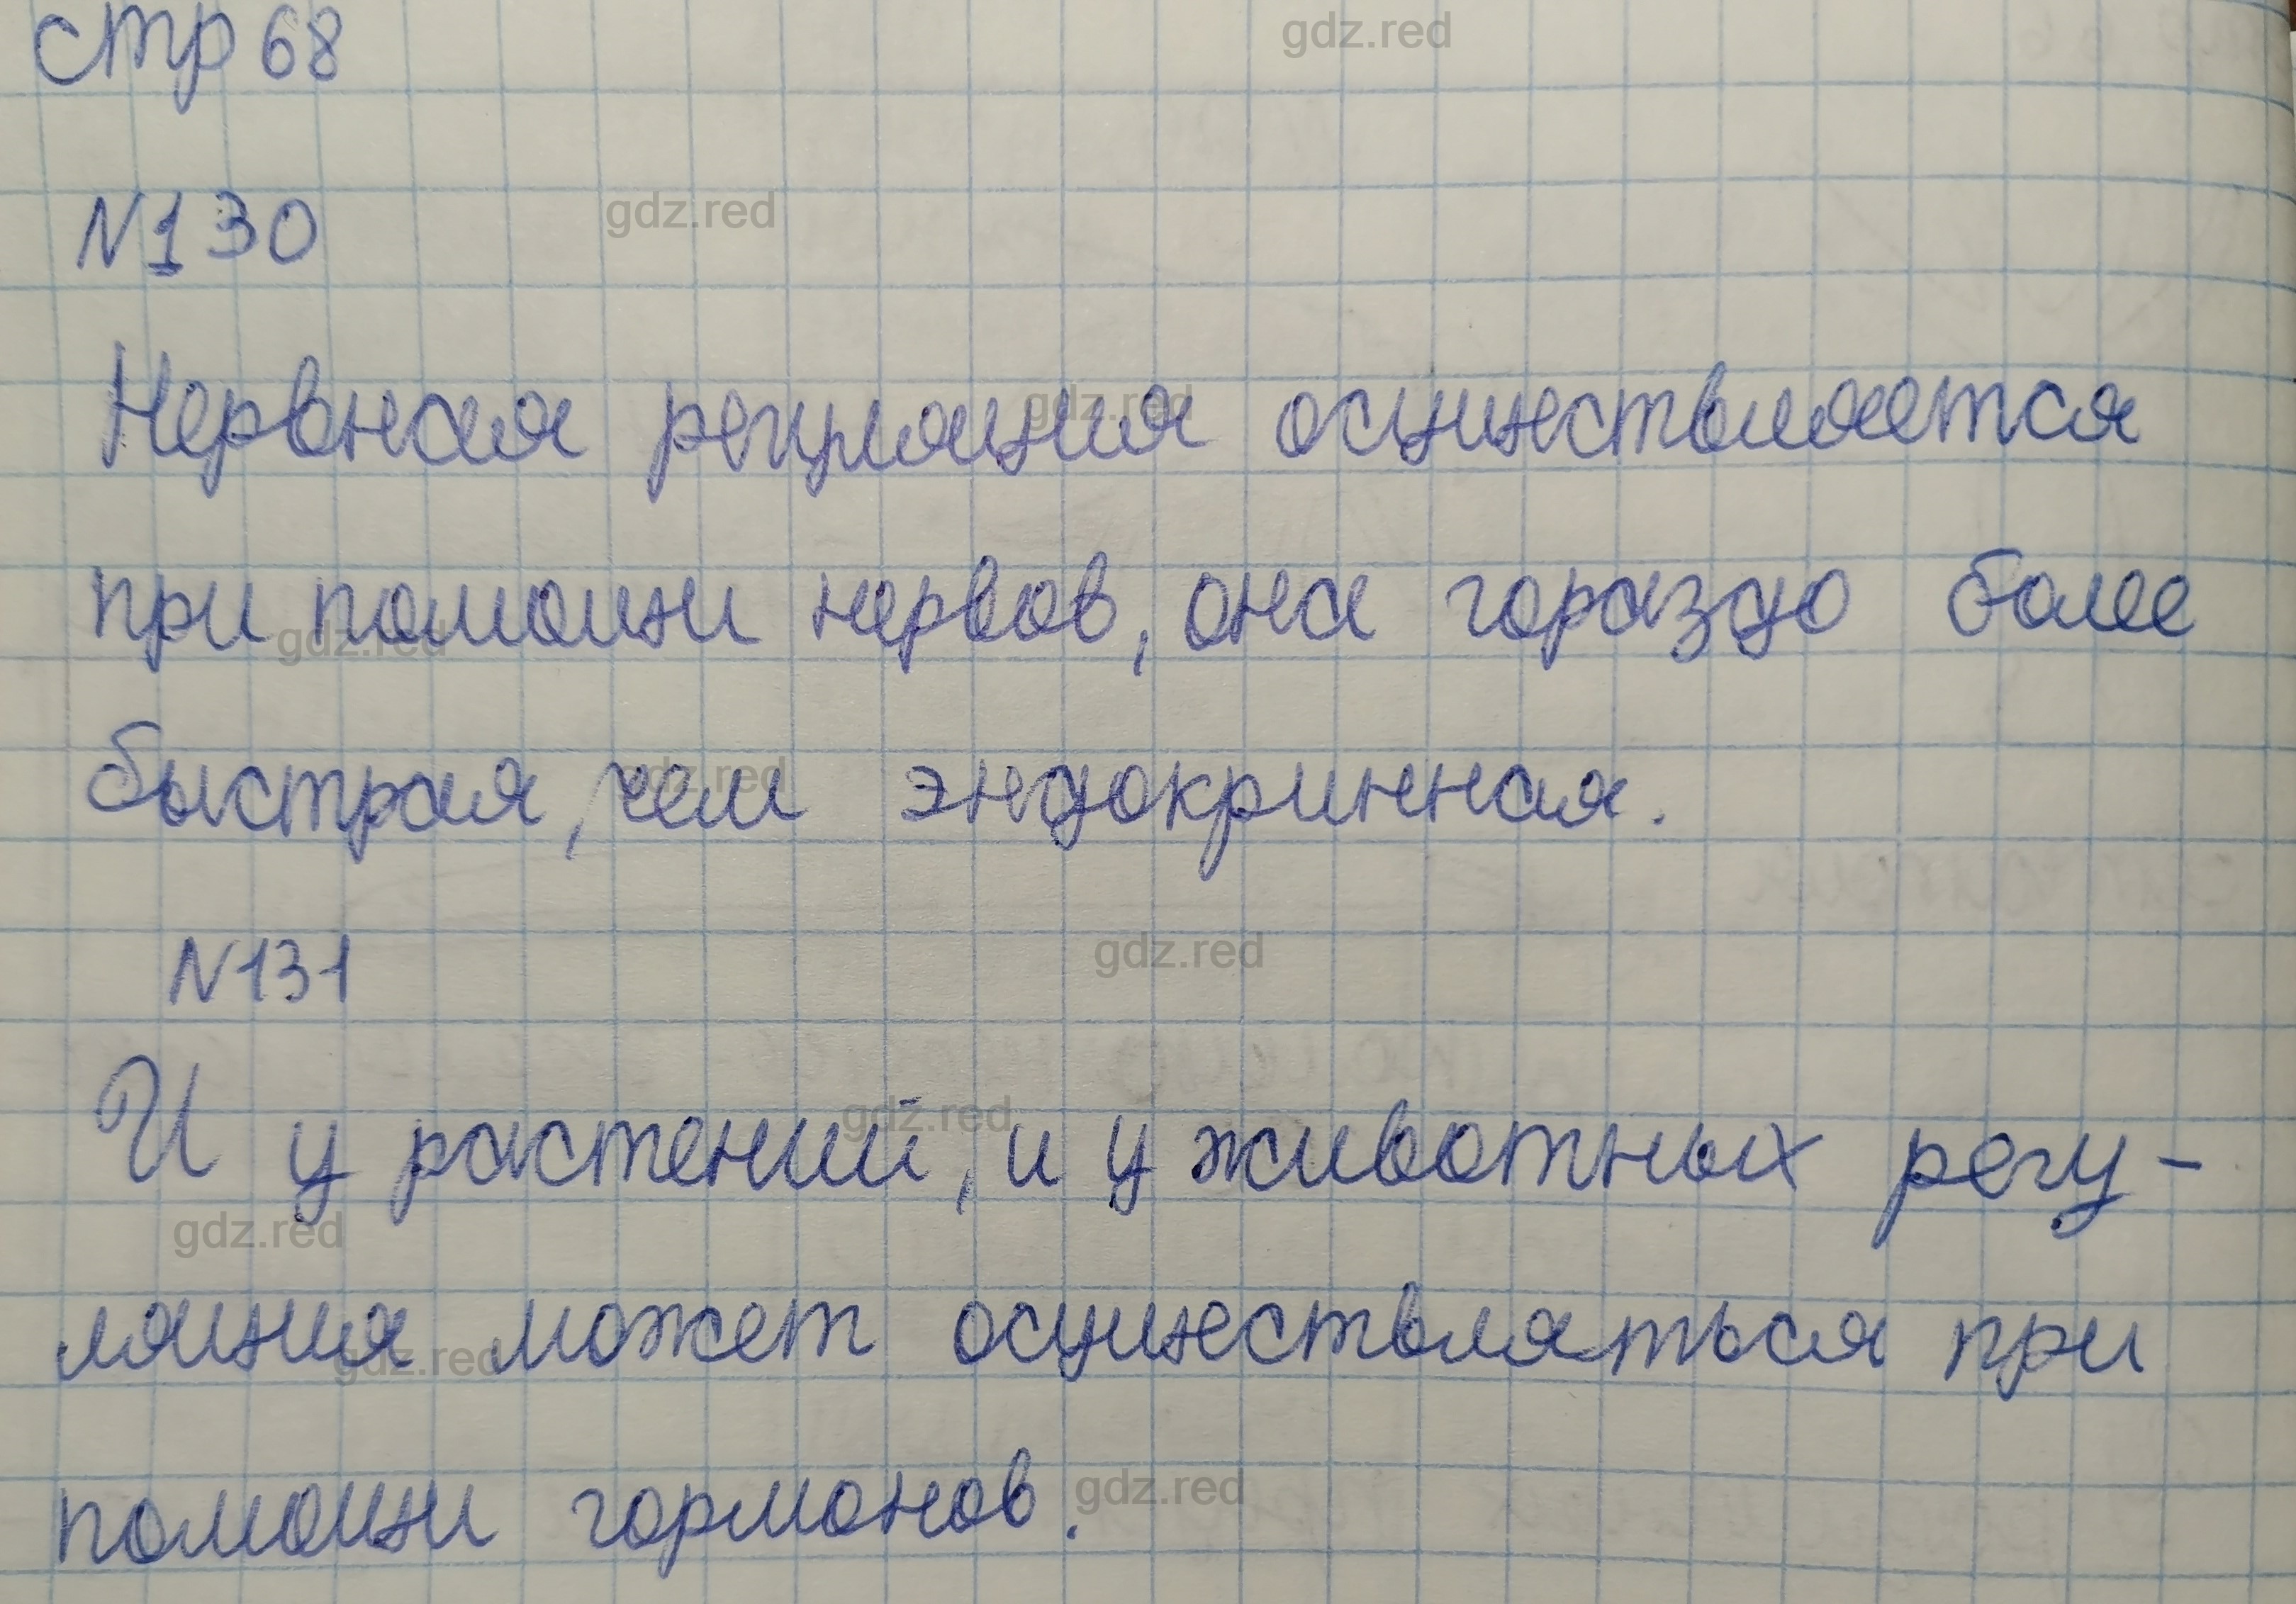 стр 68
gdz.red
№130
gdz.red
Нервная регуляция осуществляется
gdz.red
при помощи нервов, она гораздо более
gdz.red
быстрая, чем эндокринная.
gdz.red
№131
gdz.red
И у растений, и у животных регу-
gdz.red
gdz.red
ляция может осуществляться при
gdz.red
помощи гормонов.
gdz.red